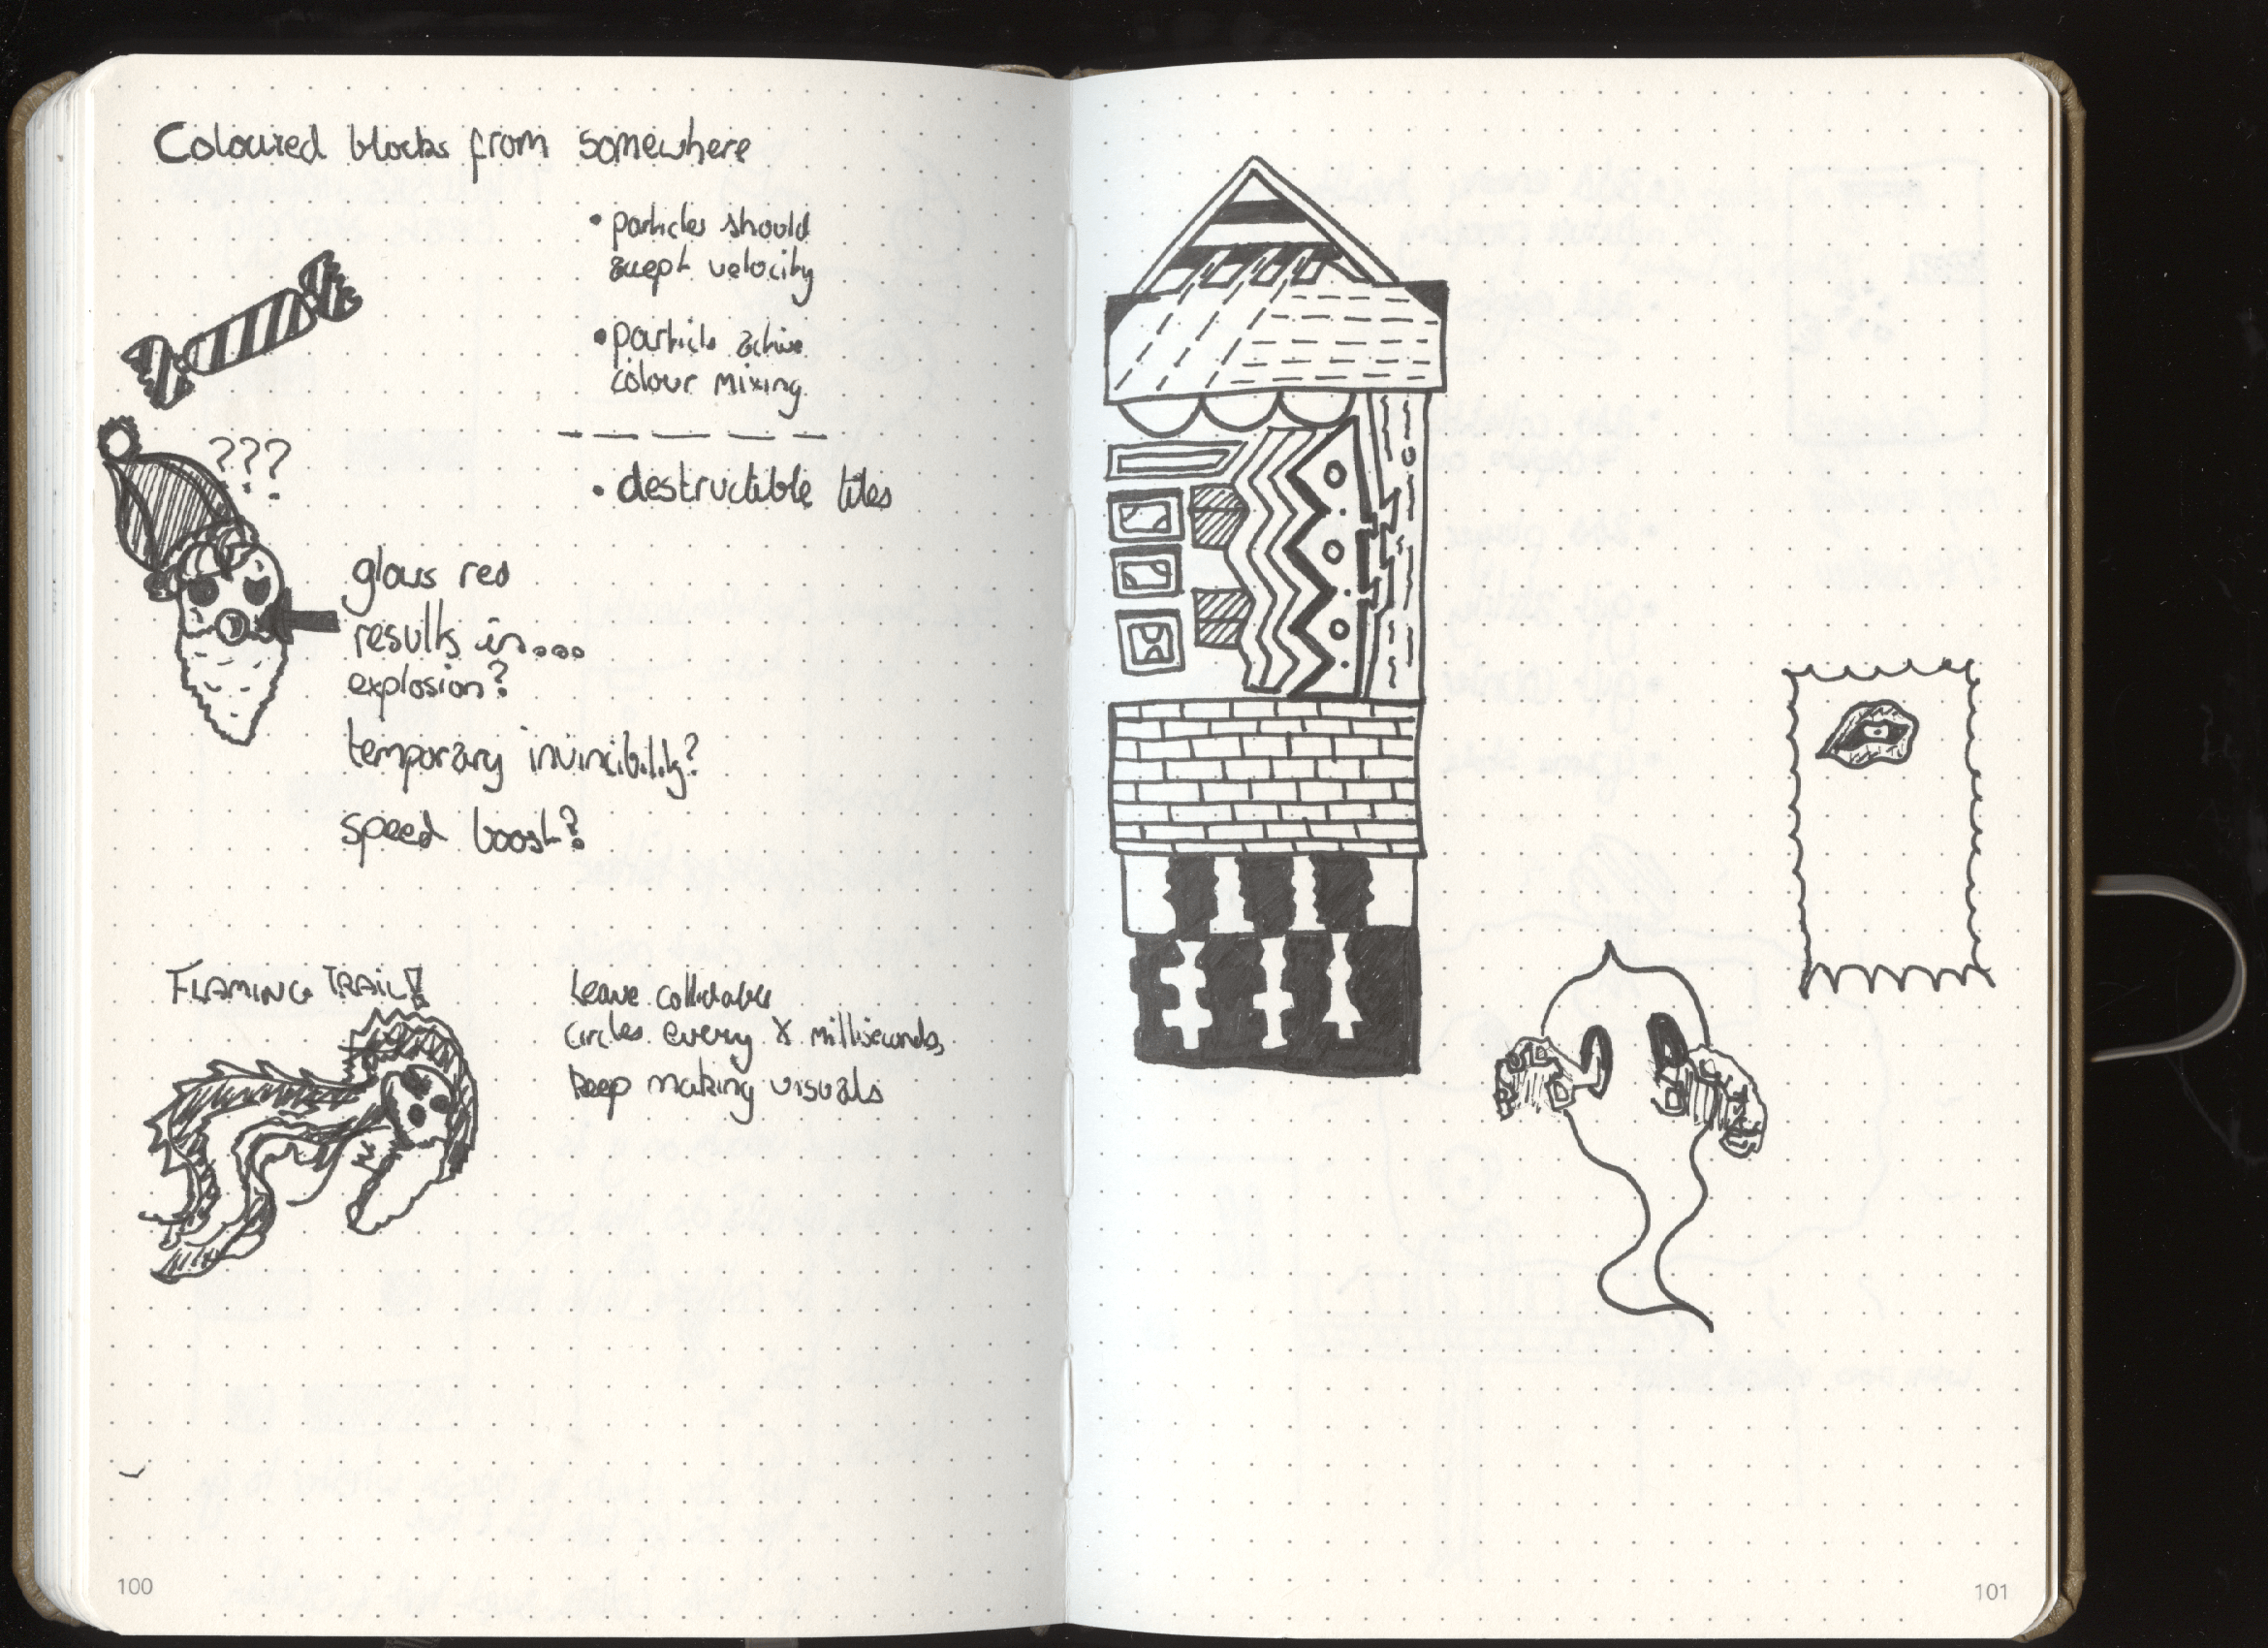 Coloured blocks from somewhere
• particles should
accept velocity
• particle active
colour mixing
• destructible tiles
???
glows red
results in...
explosion?
temporary invincibility?
speed boost?
FLAMING TRAIL!
Leave collidable
circles every X milliseconds,
keep making visuals
100
101